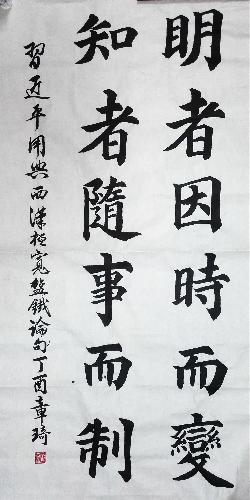 明者因時而變
知者隨事而制
習近平用典西漢桓寬盐鐵論句丁酉章琦